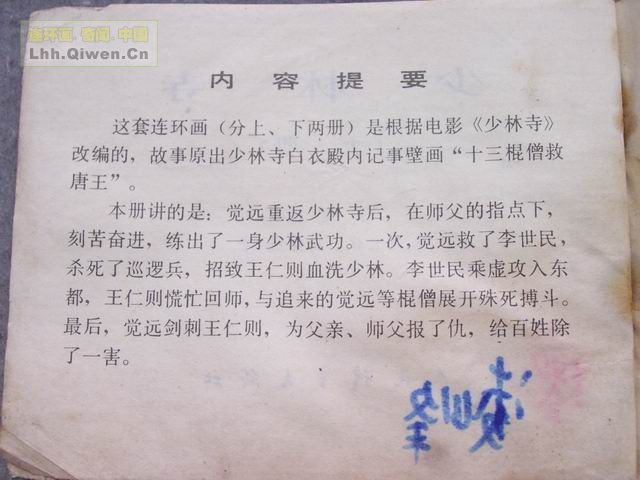 连环画.奇闻.中国
Lhh.Qiwen.Cn
内容提要
这套连环画（分上、下两册）是根据电影《少林寺》
改编的，故事原出少林寺白衣殿内记事壁画“十三棍僧救
唐王”。
本册讲的是：觉远重返少林寺后，在师父的指点下，
刻苦奋进，练出了一身少林武功。一次，觉远救了李世民，
杀死了巡逻兵，招致王仁则血洗少林。李世民乘虚攻入东
都，王仁则慌忙回师，与追来的觉远等棍僧展开殊死搏斗。
最后，觉远剑刺王仁则，为父亲、师父报了仇，给百姓除
了一害。